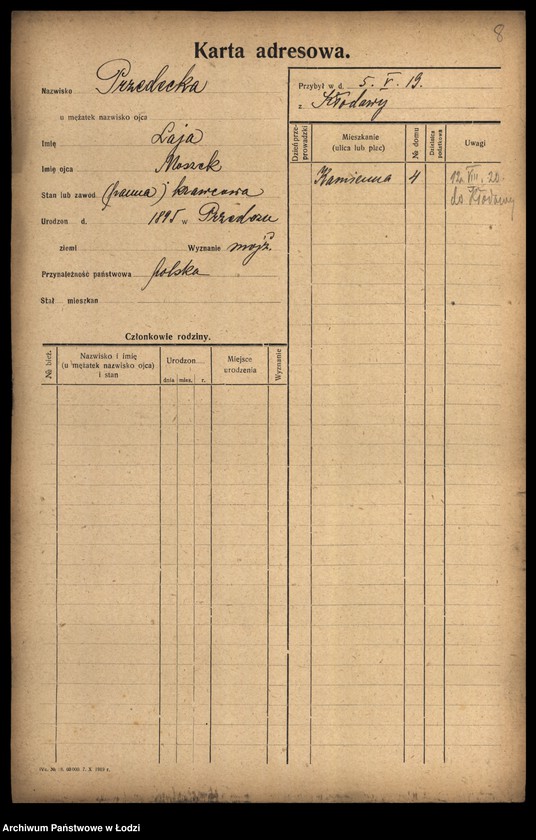 8
Karta adresowa.
Nazwisko Przedecka
u mężatek nazwisko ojca
Imię Laja
Imię ojca Moszek
Stan lub zawod (panna) krawcowa
Urodzon d. 1895 w
ziemi Wyznanie mojż.
Przynależność państwowa polska
Stał mieszkan
Przybył w d. 5. V. 19.
z Kłodawy
Dzień przeprowadzki
Mieszkanie (ulica lub plac)
№ domu
Dzielnica podatkowa
Uwagi
Kamienna 4 12. VIII. 20.
do Kłodawy
Członkowie rodziny.
№ bież.
Nazwisko i imię
(u mężatek nazwisko ojca)
i stan
Urodzon
dnia mies. r.
Miejsce
urodzenia
Wyznanie
7. X. 1919 r.
Archiwum Państwowe w Łodzi